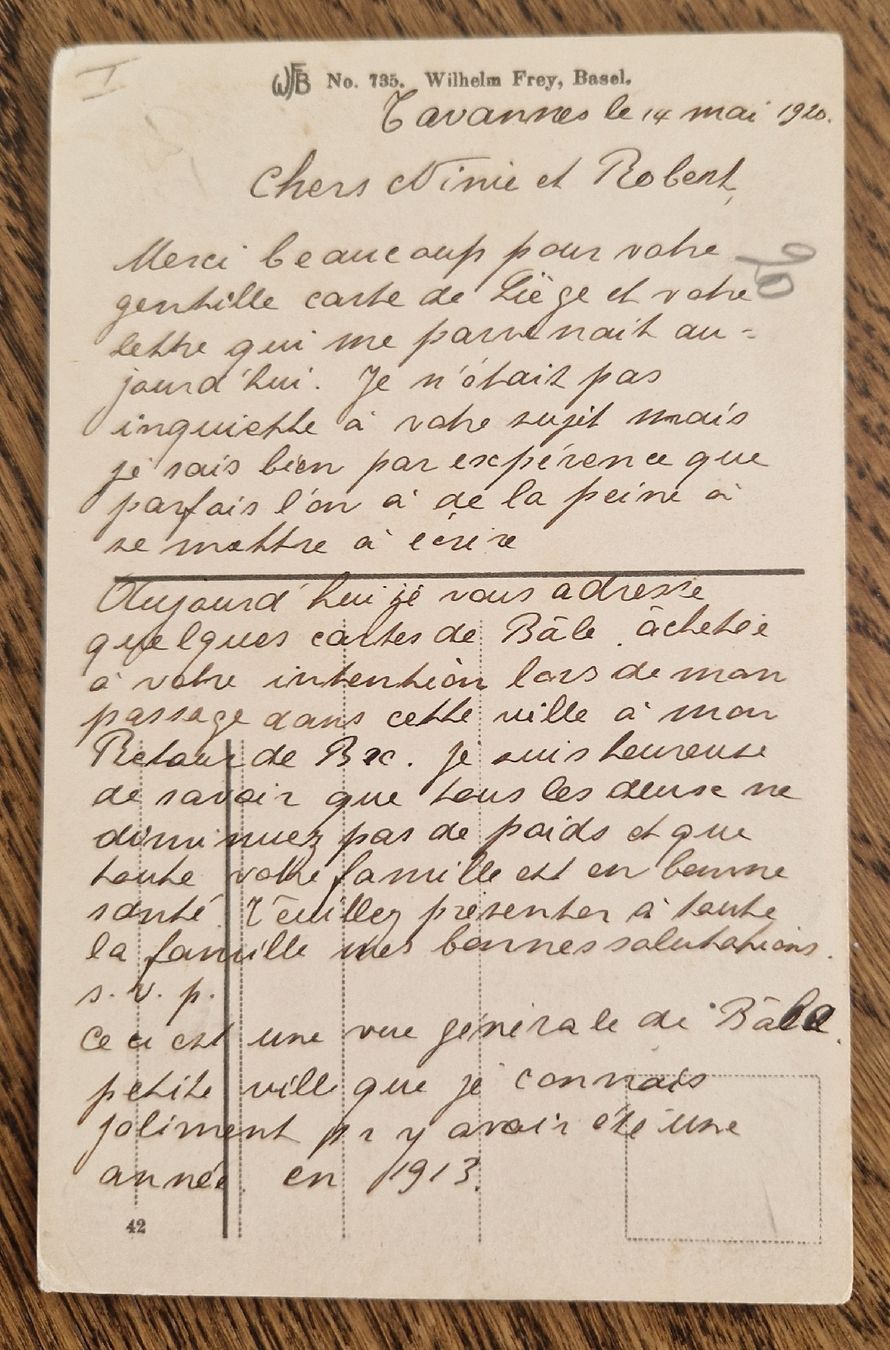 I
WFB No. 735. Wilhelm Frey, Basel.
Tavannes le 14 mai 1920.
Chers Ninie et Robert,
Merci beaucoup pour votre
20
gentille carte de Liège et votre
lettre qui me parvenait au-
jourd'hui. Je n'étais pas
inquiette à votre sujet mais
je sais bien par expérience que
parfois l'on à de la peine à
se mettre à écrire
Aujourd'hui je vous adresse
quelques cartes de Bâle achetée
à votre intention lors de mon
passage dans cette ville à mon
Retour de Bec. Je suis heureuse
de savoir que tous les deux ne
diminuez pas de poids et que
toute votre famille est en bonne
santé. Veuillez présenter à toute
la famille mes bonnes salutations.
s. v. p.
Ceci est une vue générale de Bâle.
petite ville que je connais
joliment pr y avoir été une
année en 1913.
42